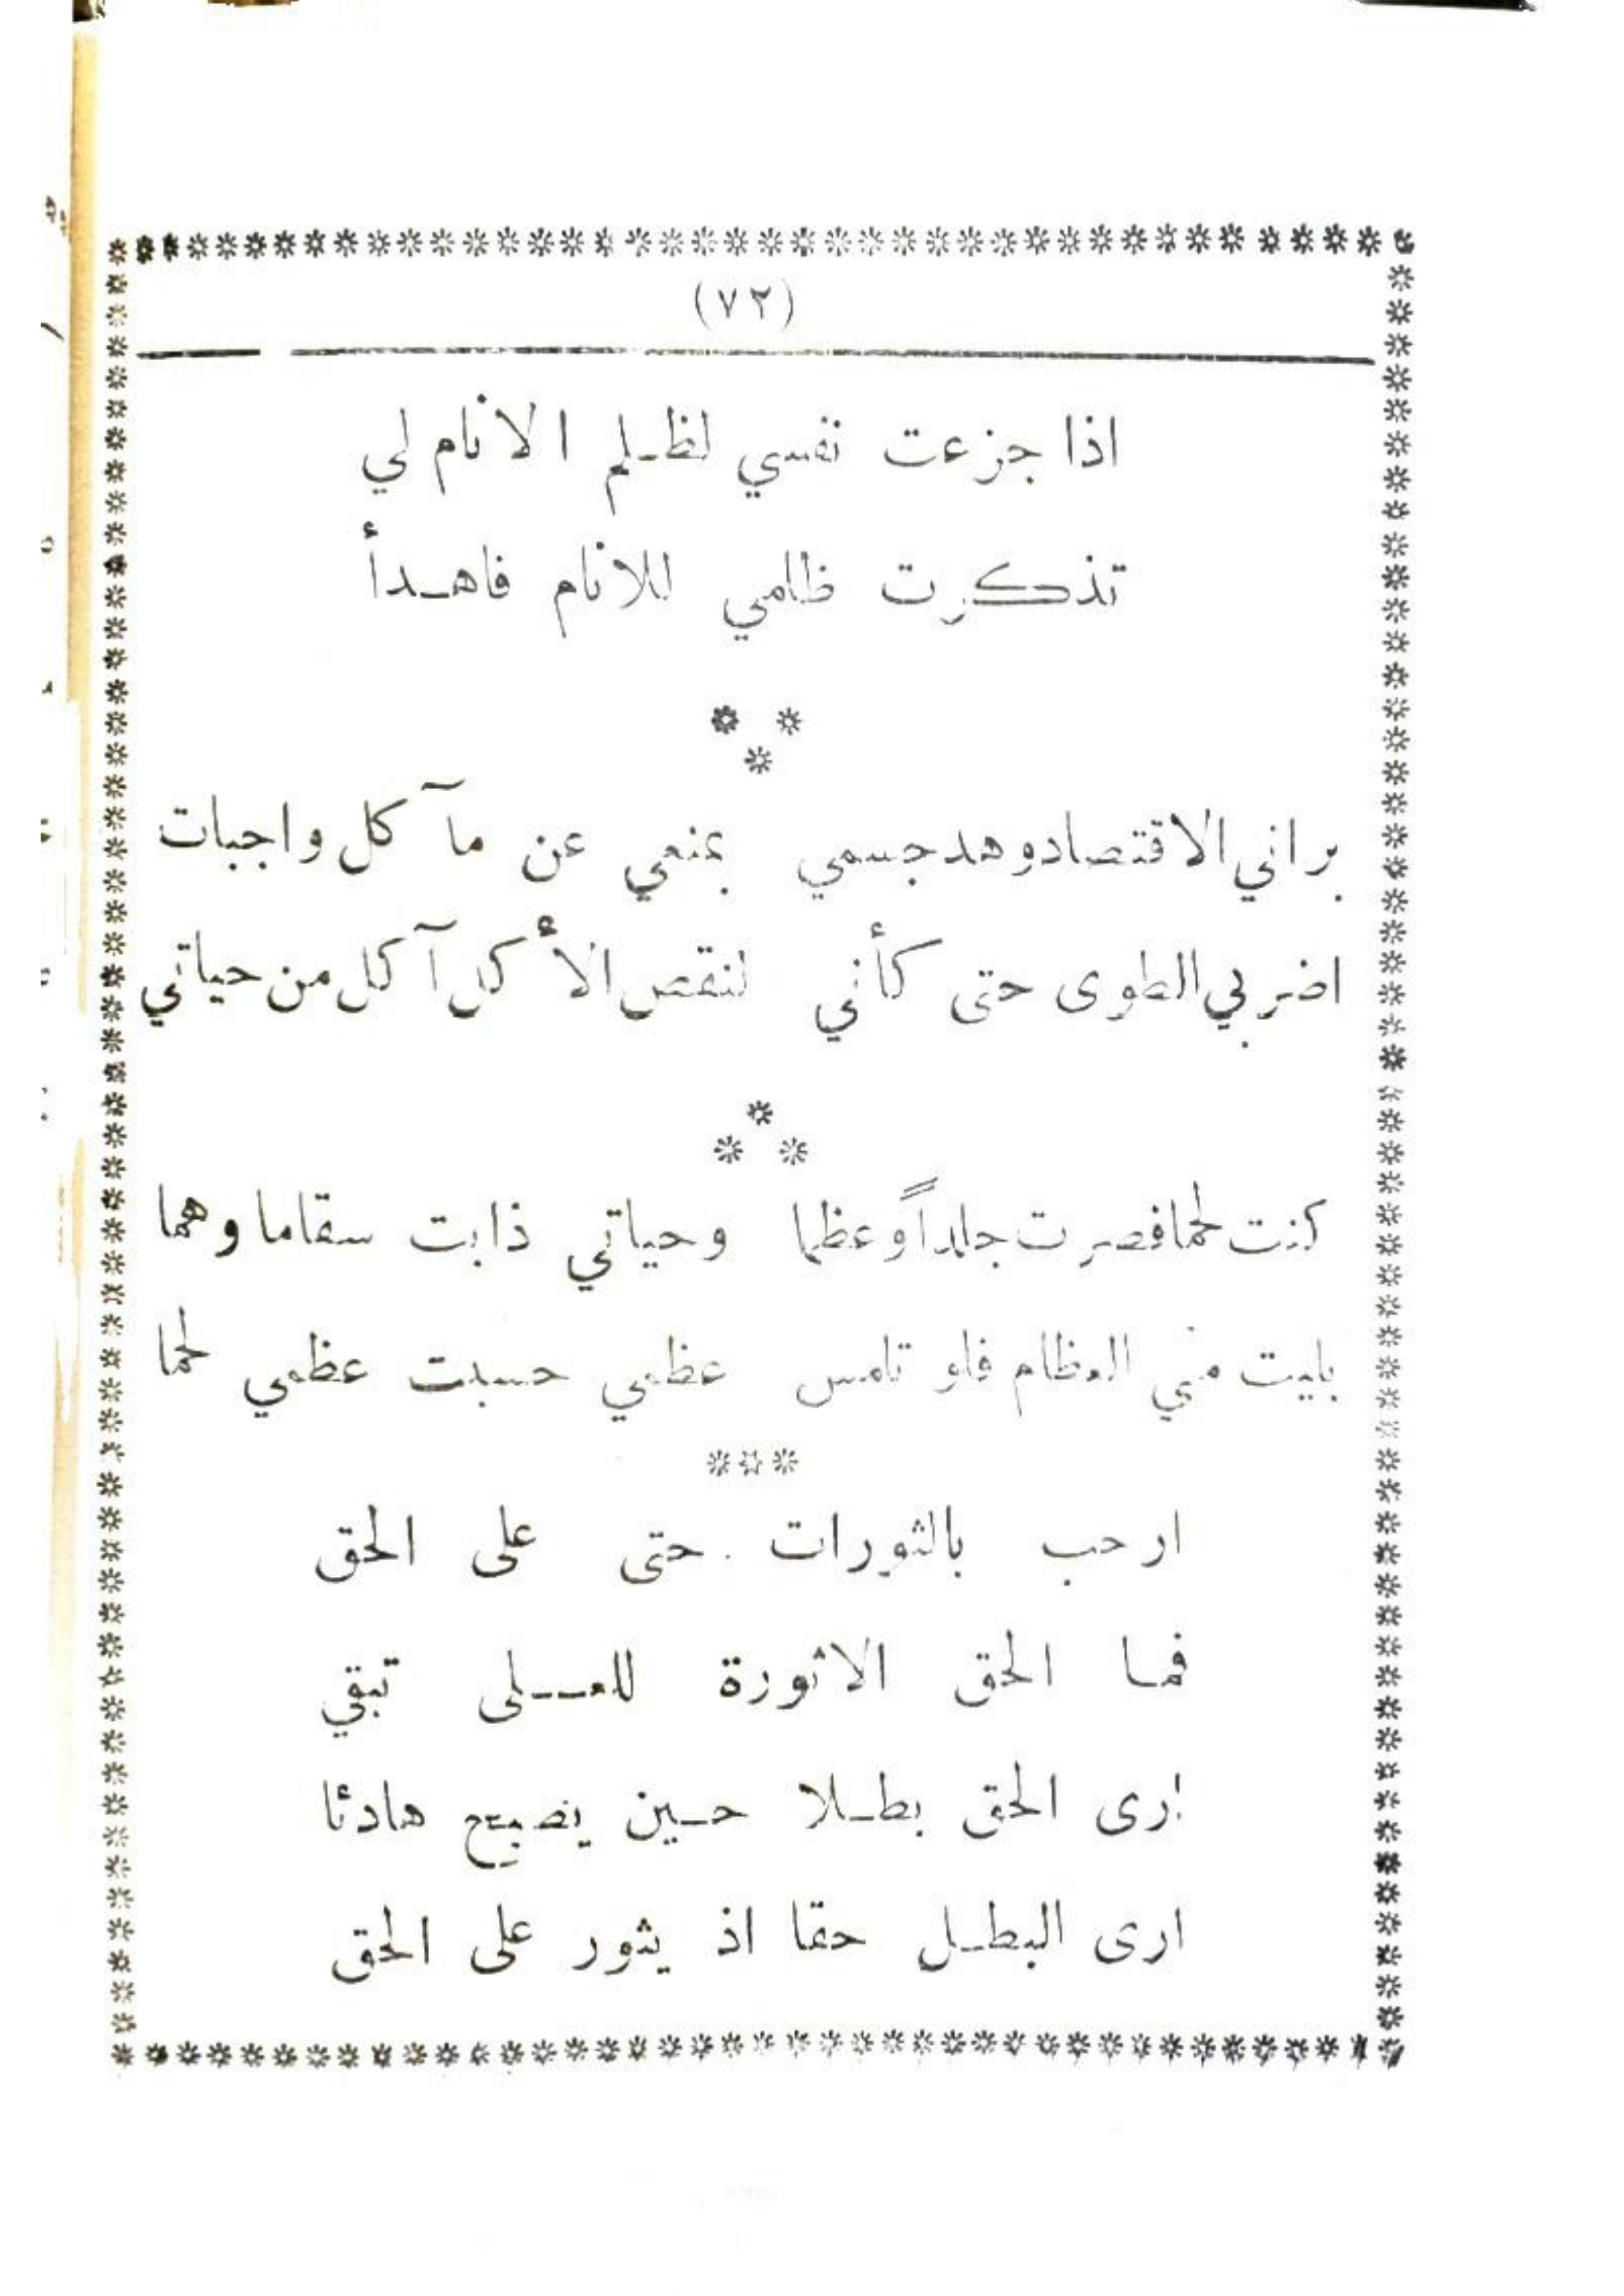 (٧٢)
اذا جزعت نفسي لظلم الانام لي
تذكرت ظلمي للانام فاهدأ
براني الاقتصاد وهد جسمي بمنعي عن مآكل واجبات
اضر بي الطوى حتى كأني لنقص الأكل آكل من حياتي
كنت لحما فصرت جلداً وعظما وحياتي ذابت سقاما وهما
بليت مني العظام فلو تلمس عظمي حسبت عظمي لحما
ارحب بالثورات حتى على الحق
فما الحق الا ثورة للعلى تبقي
ارى الحق بطلا حين يصبح هادئا
ارى البطل حقا اذ يثور على الحق